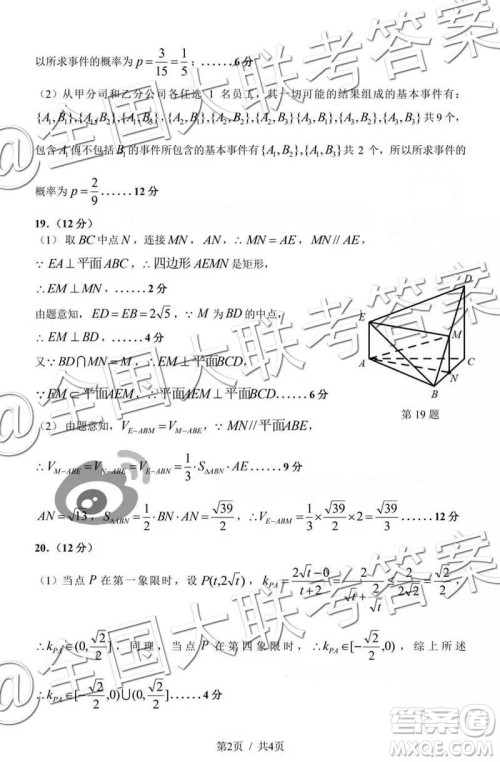 以所求事件的概率为 p = 3/15 = 1/5; ……6分
(2) 从甲分司和乙分公司各任选 1 名员工,其一切可能的结果组成的基本事件有:
{A₁,B₁},{A₁,B₂},{A₁,B₃},{A₂,B₁},{A₂,B₂},{A₂,B₃},{A₃,B₁},{A₃,B₂},{A₃,B₃}共9个,
包含A₁但不包括B₁的事件所包含的基本事件有{A₁,B₂},{A₁,B₃}共 2 个,所以所求事件的
概率为 p = 2/9 ……12分
19.(12分)
(1) 取BC中点N,连接MN,AN,∴MN=AE,MN//AE,
∵EA⊥平面ABC,∴四边形AEMN是矩形,
∴EM⊥MN ……2分
由题意知,ED=EB=2√5,∵M为BD的中点,
∴EM⊥BD ……4分
又∵BD∩MN=M,∴EM⊥平面BCD,
∵EM⊂平面AEM,∴平面AEM⊥平面BCD ……6分
D
E
M
A
C
N
B
第19题
(2) 由题意知,V_{E-ABM}=V_{M-ABE},MN//平面ABE,
∴V_{M-ABE}=V_{N-ABE}=V_{E-ABN}=1/3·S_{ΔABN}·AE ……9分
AN=√13,S_{ΔABN}=1/2·BN·AN=√39/2,∴V_{E-ABM}=1/3×√39/2×2=√39/3 ……12分
20.(12分)
(1)当点P在第一象限时,设P(t,2√t),k_{PA}=(2√t-0)/(t+2)=2/(√t+2/√t)≤2/(2√2)=√2/2,
∴k_{PA}∈(0,√2/2],同理,当点P在第四象限时,∴k_{PA}∈[-√2/2,0),综上所述
∴k_{PA}∈[-√2/2,0)∪(0,√2/2] ……4分
第2页 / 共4页
@全国大联考答案
@全国大联考答案
@全国大联考答案
答案圈
MXQE.COM